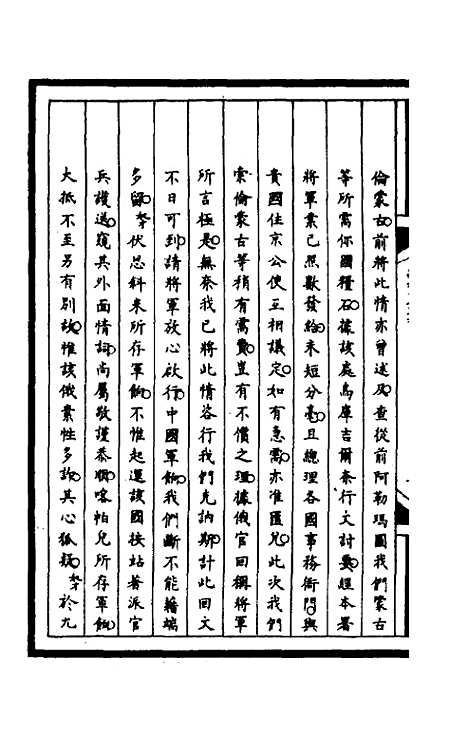 倫蒙古。前將此情亦曾述及。查從前阿勒瑪圖我們蒙古
等所需你國糧石。據該處烏庫吉爾奈行文討要。經本署
將軍業已照數發給。未短分毫。且總理各國事務衙門。與
貴國住京公使互相議定。如有急需。亦准匯兌。此次我們
索倫蒙古等稍有需費。豈有不償之理。據俄官回稱將軍
所言極是。無奈我已將此情咨行我們克訥斯。計此回文
不日可到。請將軍放心啟行。中國軍餉。我們斷不能藉端
多留。奴才伏思斜米所存軍餉。不惟起運該國接站著派官
兵護送。窺其外面情詞。尚屬敬護恭順。喀帕兒所存軍餉。
大抵不至另有別故。惟該俄業性多詐。其心狐疑。奴才於九